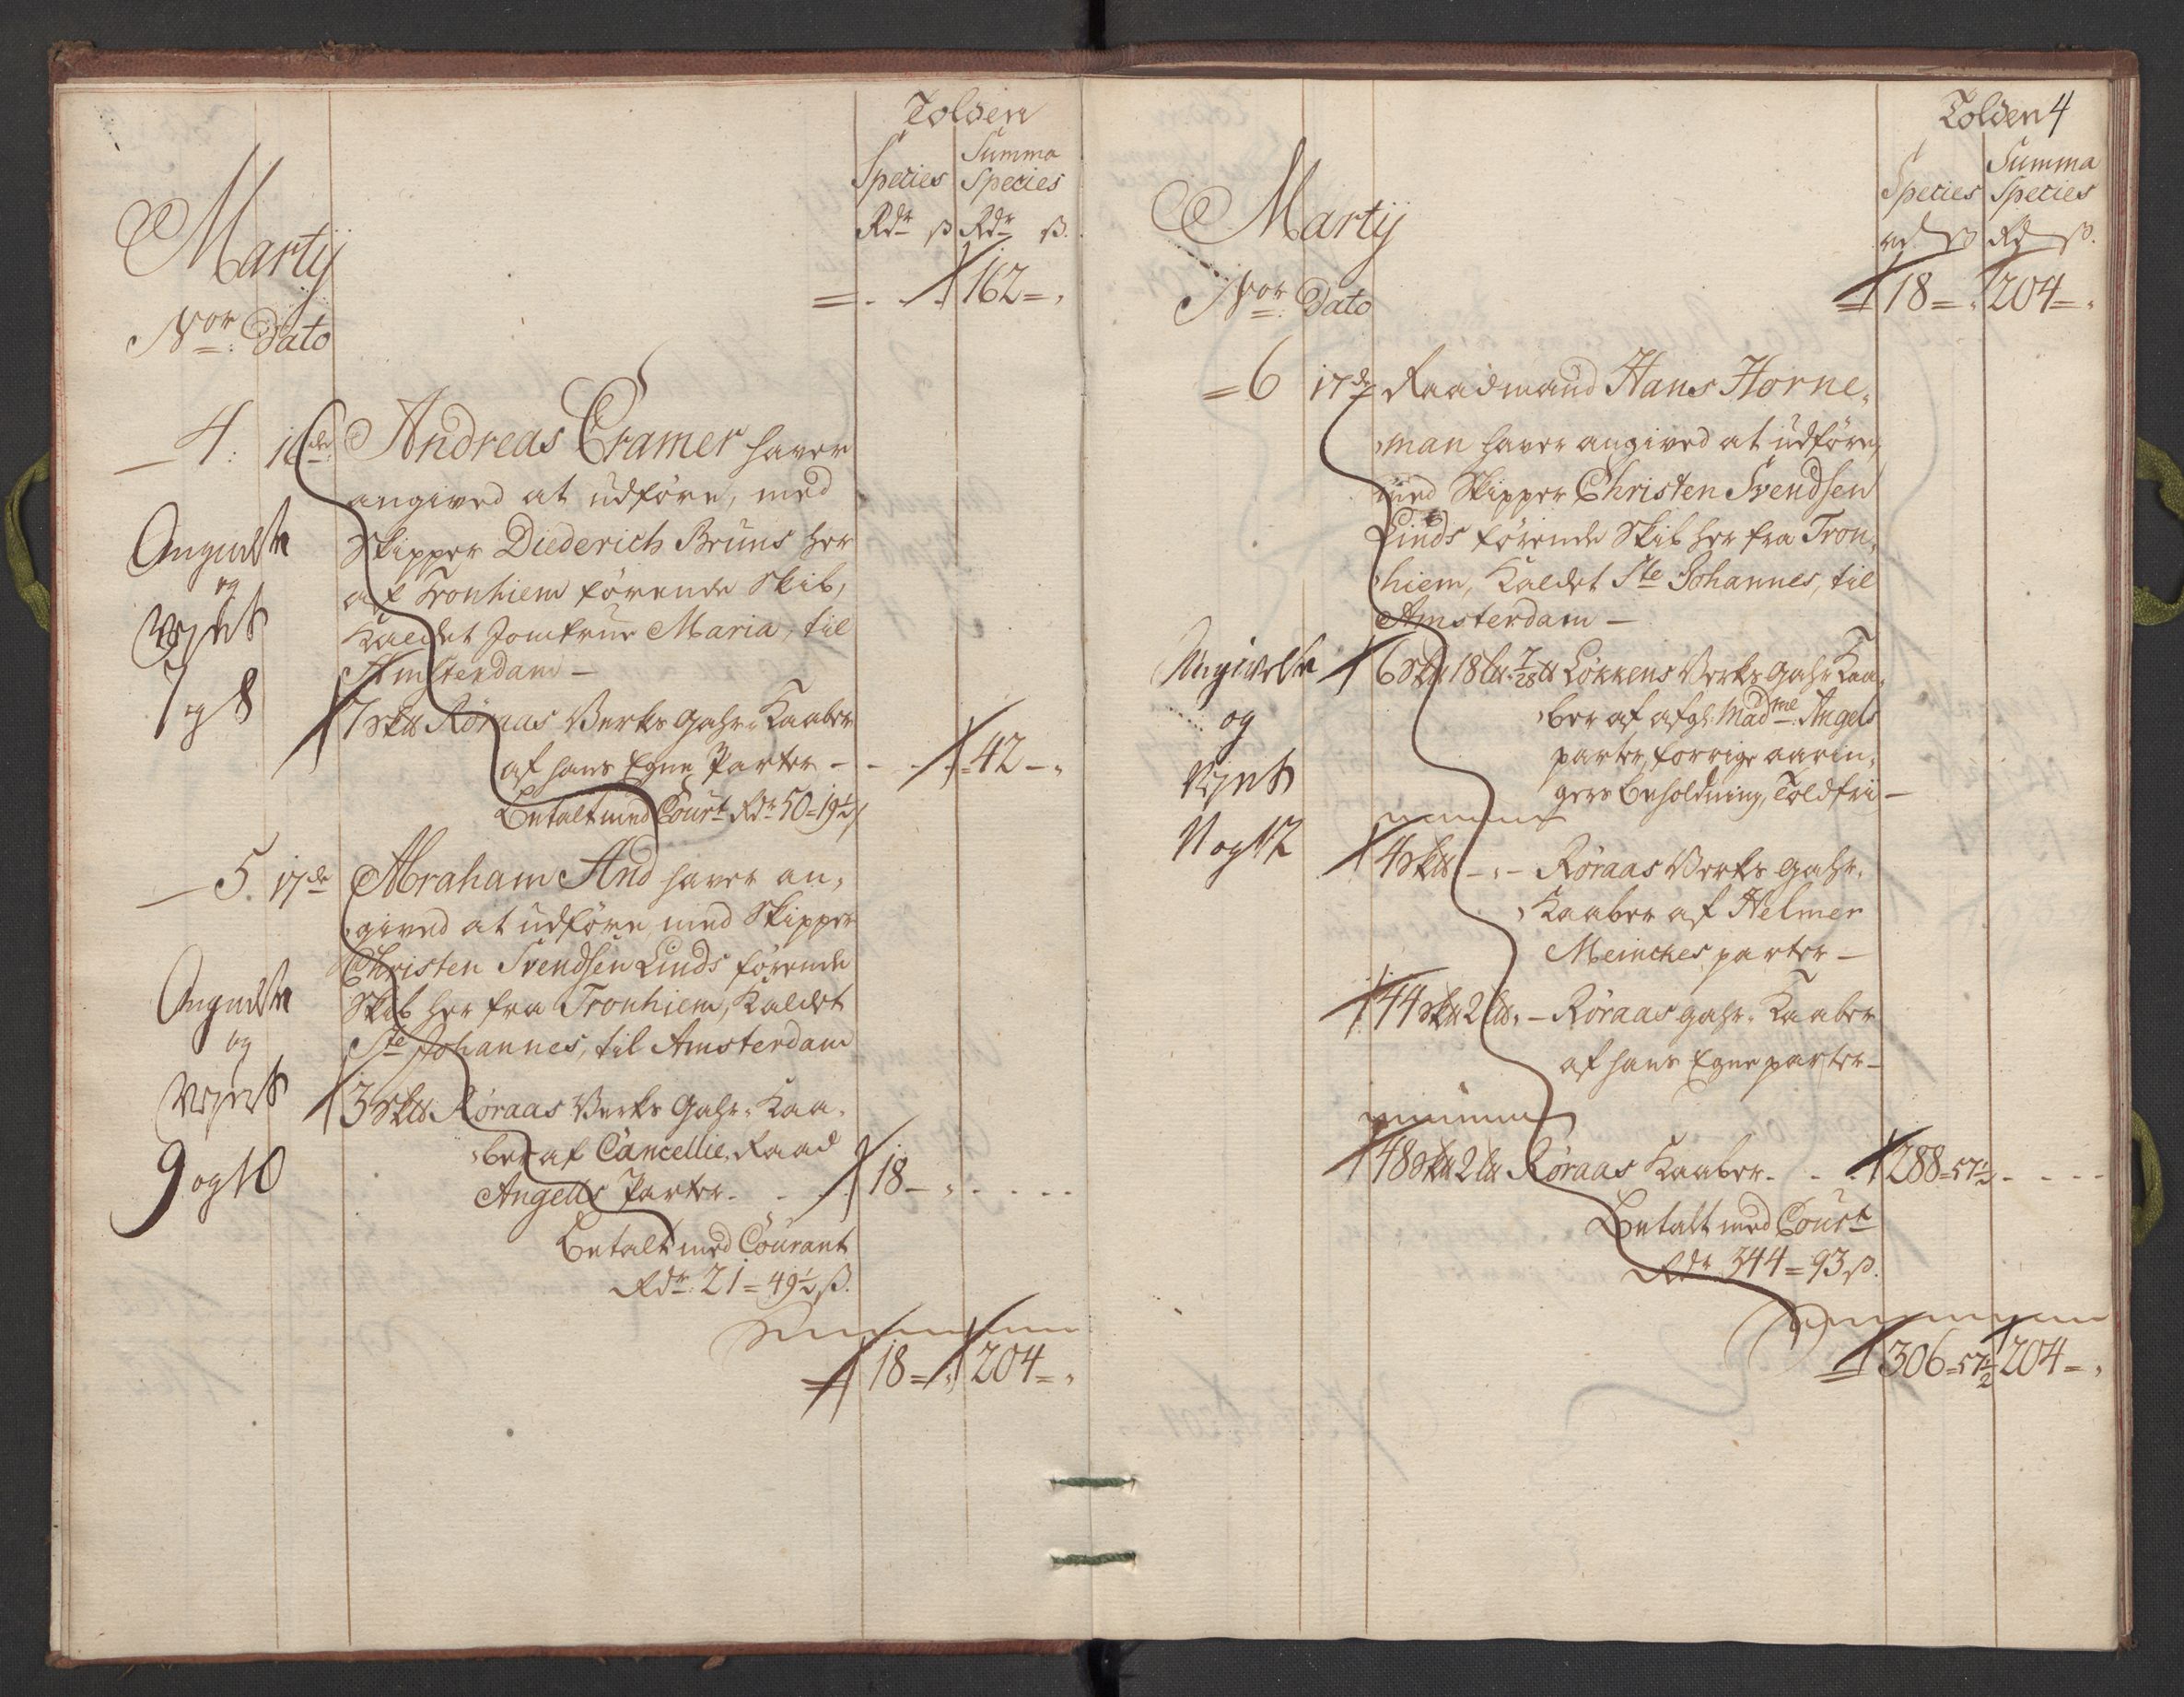 Tolden
Species
Summa
Species
Rdr ß Rdr ß.
Martij
= . . 162 = "
Nor: Dato
4: 16de Andreas Cramer haver
angived at udføre, med
Skipper Diederich Bruns her
af Tronhiem førende Skib,
Kaldet Jomfrue Maria, til
Amsterdam —
Angivelse
og
Vejns
7 og 8
7 Sk℔ Røraas Verks Gahr-Kaaber
af hans Egne Parter — - . 42 - "
Betalt med Court Rdr 50 = 19½ ß
5. 17de Abraham And haver an,
,gived at udføre, med Skipper
Christen Svendsen Linds førende
Skib her fra Tronhiem, Kaldet
Ste Johannes, til Amsterdam
Angivelse
og
Vejns
9 og 10
3 Sk℔ Røraas Verks Gahr-Kaa,
,ber af Cancellie Raad
Angells Parter. . . 18 - " . . . .
Betalt med Courant
Rdr 21 = 49½ ß.
18 = " 204 = "
Tolden 4
Species
Summa
Species
rd ß Rd ß.
Martij
Nor: Dato
18 = " 204 = "
= 6 17de Raadmand Hans Horne,
,man haver angived at udføre,
med Skipper Christen Svendsen
Linds førende Skib her fra Tron,
,hiem, Kaldet Ste Johannes, til
Amsterdam —
Angivelse
og
Vejns
11 og 12
6 Sk℔ 18 L℔ 7/28 ℔ Løkkens Verks Gahr Kaa,
,ber af afgl: Madme Angels
parter, forrige aarin,
gers Beholdning, Toldfri —
4 Sk℔ - " - Røraas Verks Gahr,
,Kaaber af Helmer
Meinches parter —
44 Sk℔ 2 L℔ " - Røraas Gahr-Kaaber
af hans Egne parter —
48 Sk℔ 2 L℔ Røraas Kaaber . . . 288 = 57½ . . . .
Betalt med Court
Rdr 344 = 93 ß.
306 = 57½ 204 = "